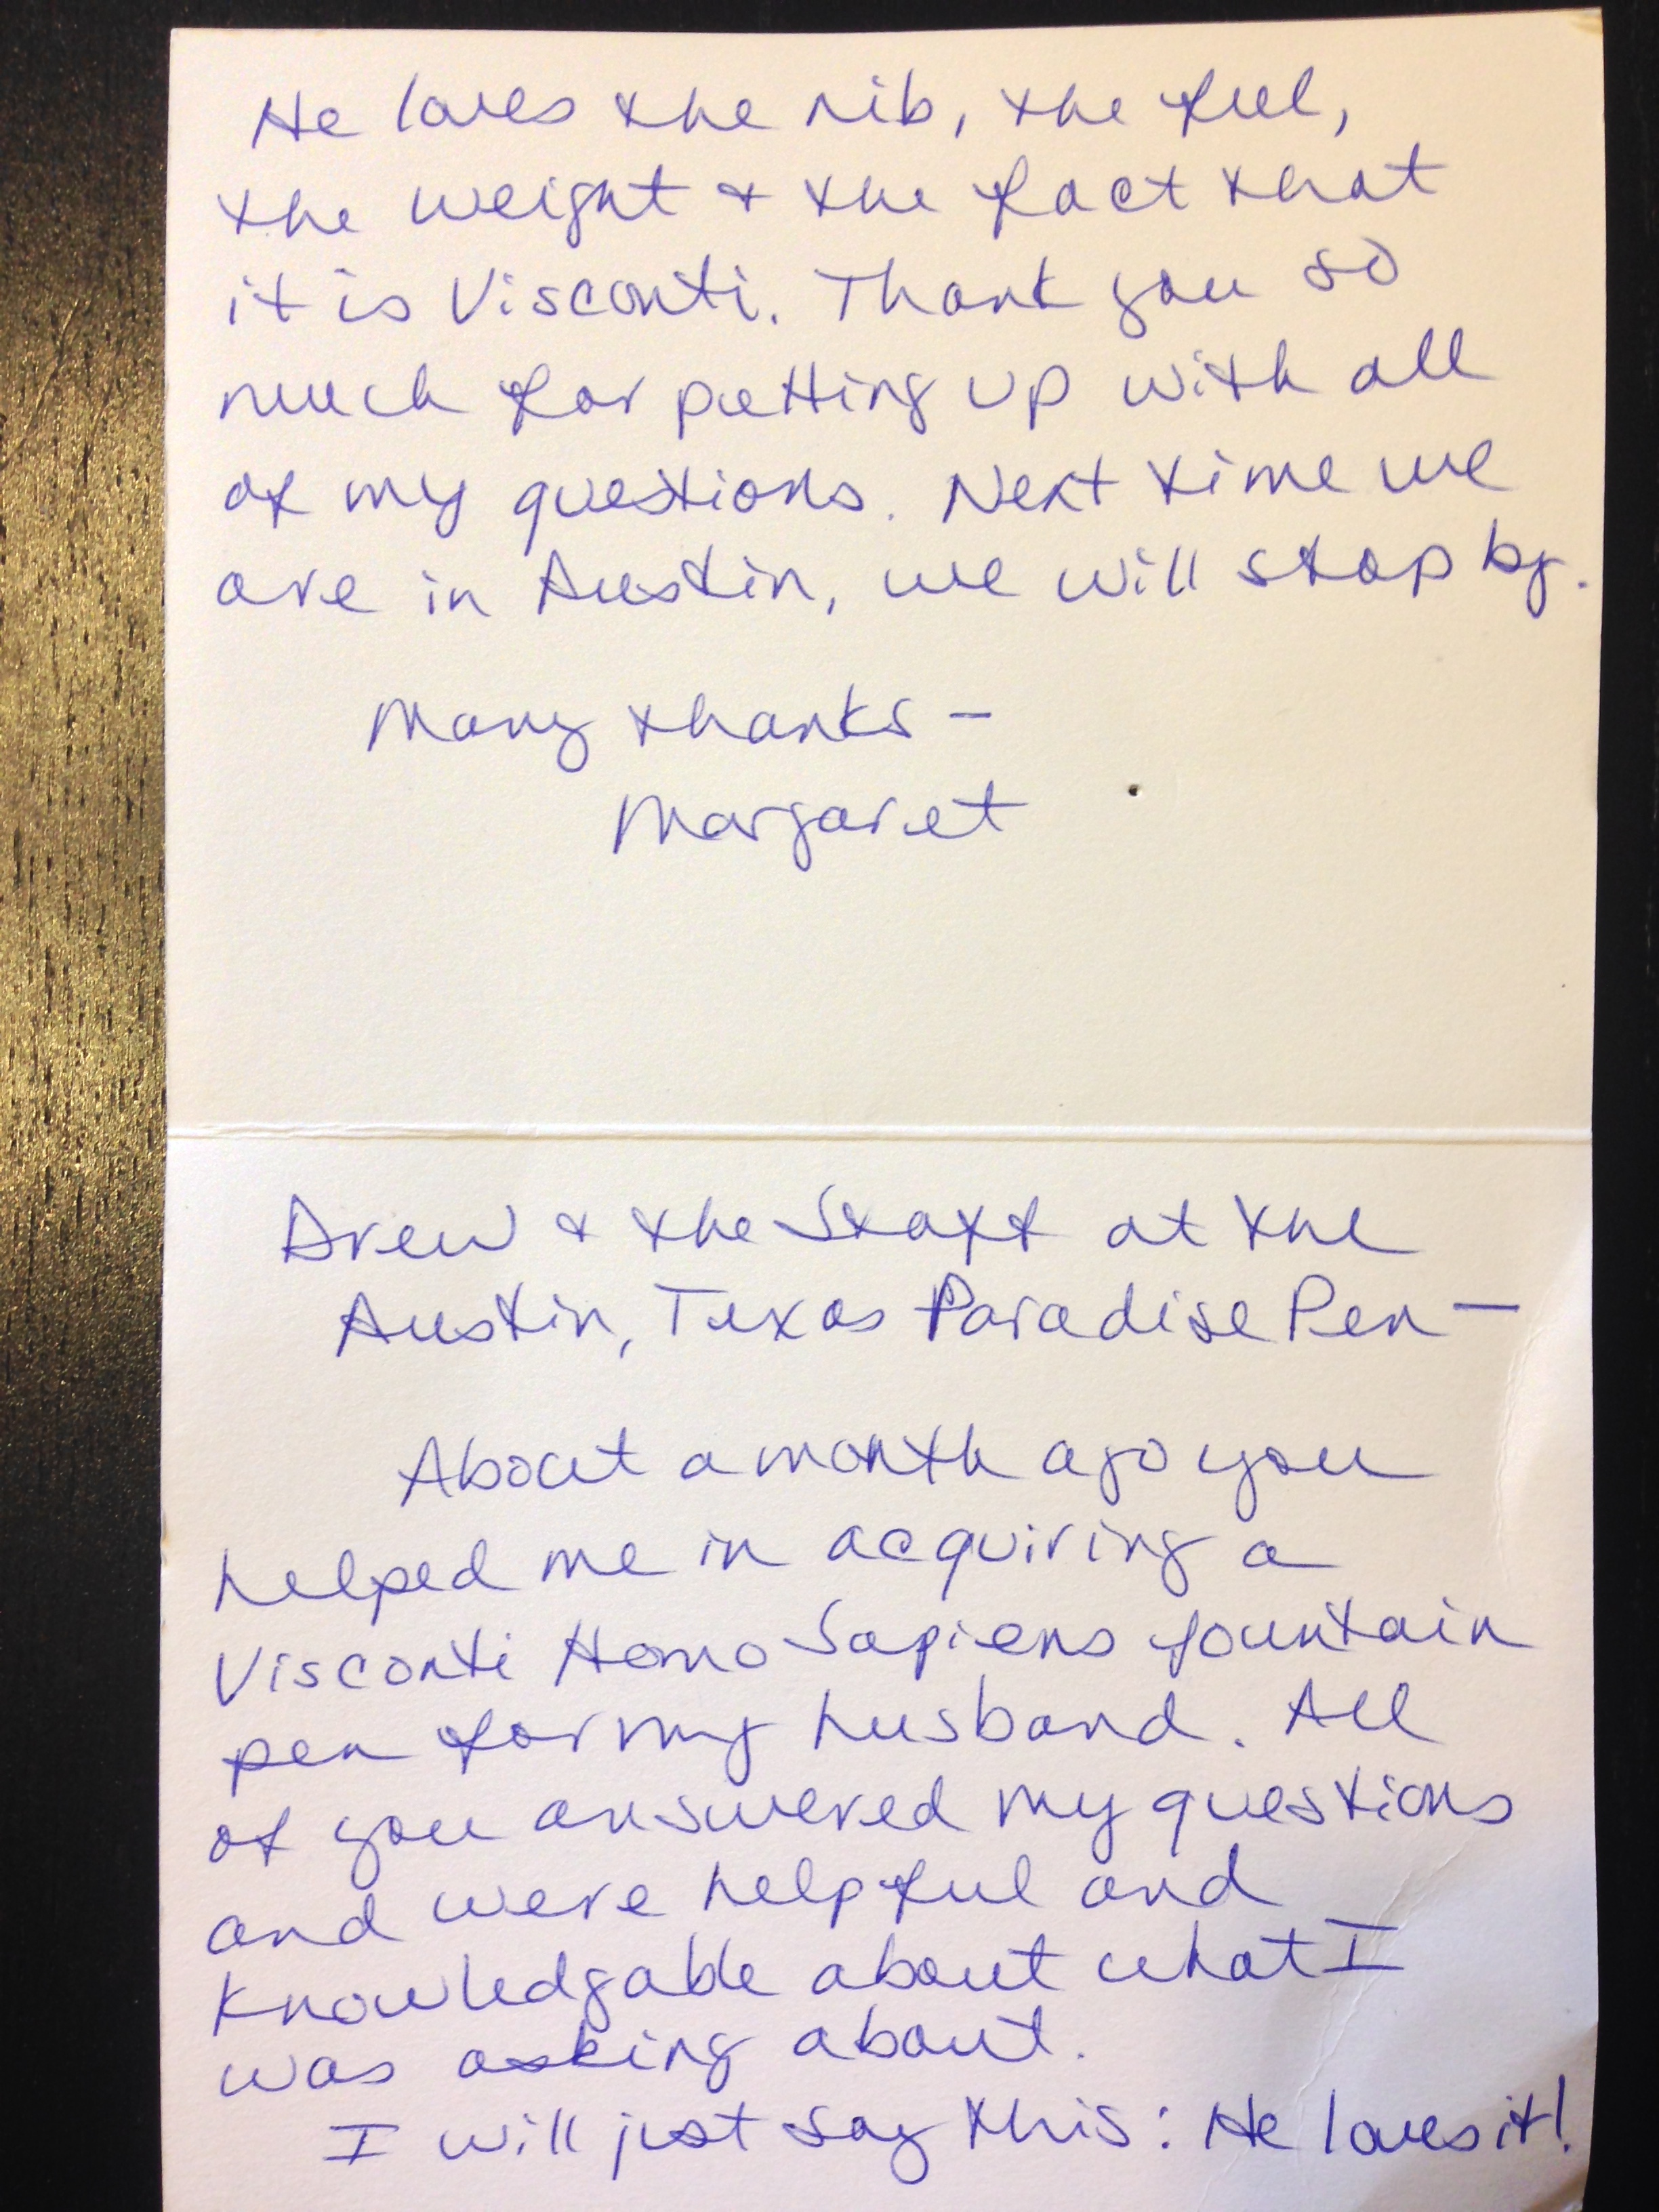 He loves the nib, the feel,
the weight & the fact that
it is Visconti. Thank you so
much for putting up with all
of my questions. Next time we
are in Austin, we will stop by.
Many thanks –
Margaret
Drew & the Staff at the
Austin, Texas Paradise Pen –
About a month ago you
helped me in acquiring a
Visconti Homo Sapiens fountain
pen for my husband. All
of you answered my questions
and were helpful and
knowledgable about what I
was asking about.
I will just say this: He loves it!